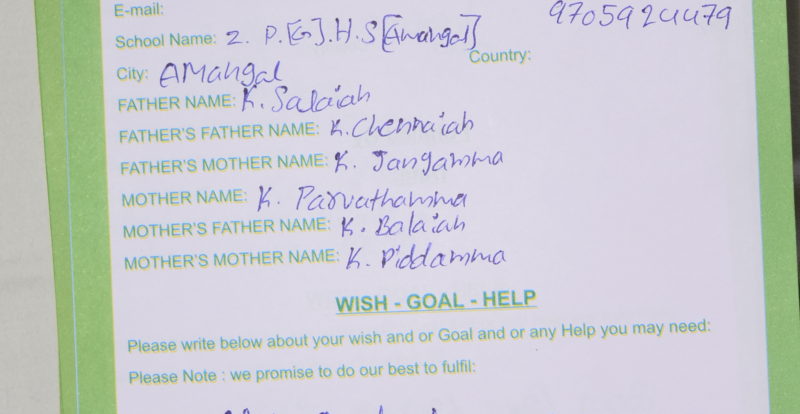 E-mail:
9705924479
School Name: 2. P.[G].H.S[Amangal]
Country:
City: AMangal
FATHER NAME: K. Salaiah
FATHER'S FATHER NAME: K. Chennaiah
FATHER'S MOTHER NAME: K. Jangamma
MOTHER NAME: K. Parvathamma
MOTHER'S FATHER NAME: K. Balaiah
MOTHER'S MOTHER NAME: K. Piddamma
WISH - GOAL - HELP
Please write below about your wish and or Goal and or any Help you may need:
Please Note : we promise to do our best to fulfil: